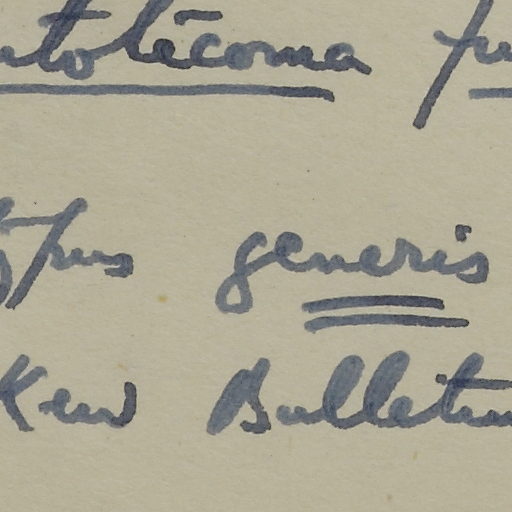 totecoma
ypus generis
Kew Bulletin